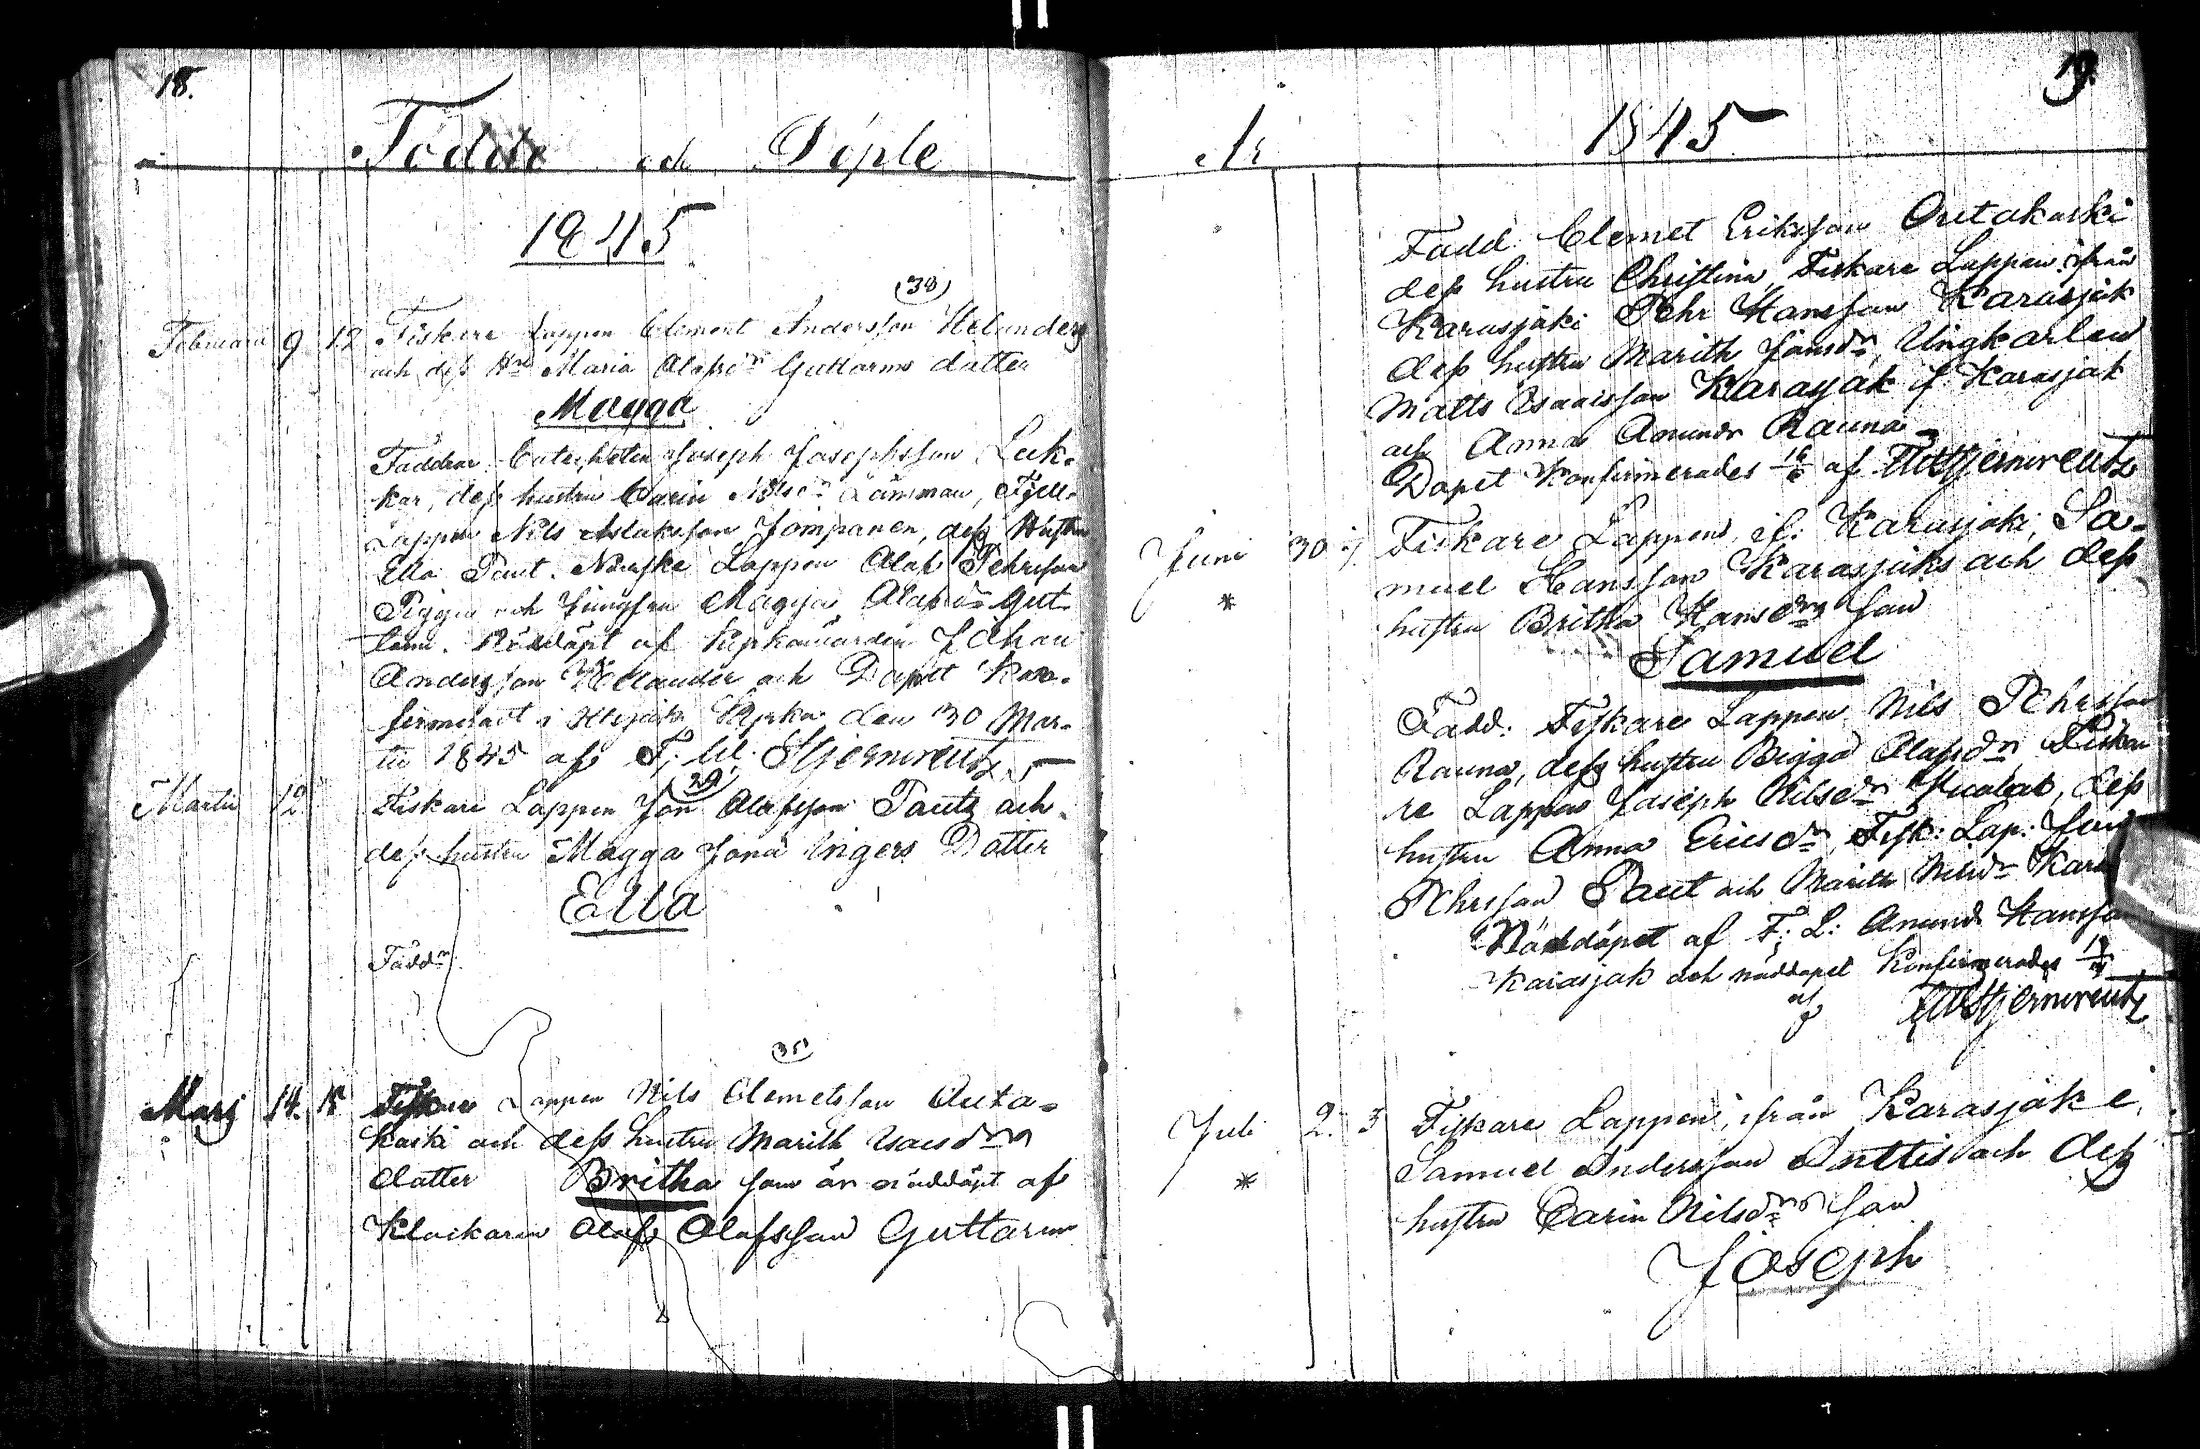 18.
Födde och Döpte
1845
(38)
Februarii 9 12 Fiskare Lappen Clement Andersson Helander
och dess Hu Maria Olofsdr Guttorms dotter
Magga
Faddrar Catecheten Joseph Josephsson Luk-
kar, dess hustru Carin Nilsdr Länsman, Fjell-
Lappen Nils Aslaksson Jomppanen, dess Hustru
Ella Paut. Norske Lappen Olof Pehrsson
Pigga och Jungfrun Magga Olofsdr Gut-
torm. Nöddöpt af Kyrkovärden Johan
Andersson Helander och Dopet Kon-
firmeradt i Utsjoki Kyrka den 30 Mar-
tii 1845 af F. W. Stjerncreutz
(29)
Martii 12 Fiskare Lappen Jon Olofsson Pautz och
dess hustru Magga Jona Ingers Dotter
Ella
Faddr
(35)
Martj 14. 15 Fiskare Lappen Nils Clemetsson Outa-
koski och dess hustru Marith Isacsdrs
dotter Britha som är nöddöpt af
Klockaren Olof Olofsson Guttorm
19.
År 1845
Fadd. Clemet Eriksson Outakoski
dess hustru Christina, Fiskare Lappen ifrån
Karasjoki Pehr Hansson Karasjok
dess hustru Marith Jönsdr, Ungkarlen
Matts Esaiasson Karasjok if. Karasjok
och Anna Amunds Rauna
Dopet Konfirmerades 16/6 af FWStjerncreutz
Juni 30 Fiskare Lappens if: Karasjoki, Sa-
* muel Hansson Karasjoks och dess
hustru Britha Hansdrs son
Samuel
Fadd: Fiskare Lappen Nils Pehrsson
Rauna, dess hustru Bigga Olofsdr, Fiska-
re Lappen Joseph Nilsdr, dess
hustru Anna Ericsdr, Fisk: Lap:
Pehrsson Paut och Marith Nilsdr
Nöddöpet af F: L: Amund Hansson
Karasjok och nöddopet Konfirmerades
af FWStjerncreutz
Juli 2. 3 Fiskare Lappens, ifrån Karasjoki,
* Samuel Andersson Anttis och dess
hustru Carin Nilsdrs son
Joseph